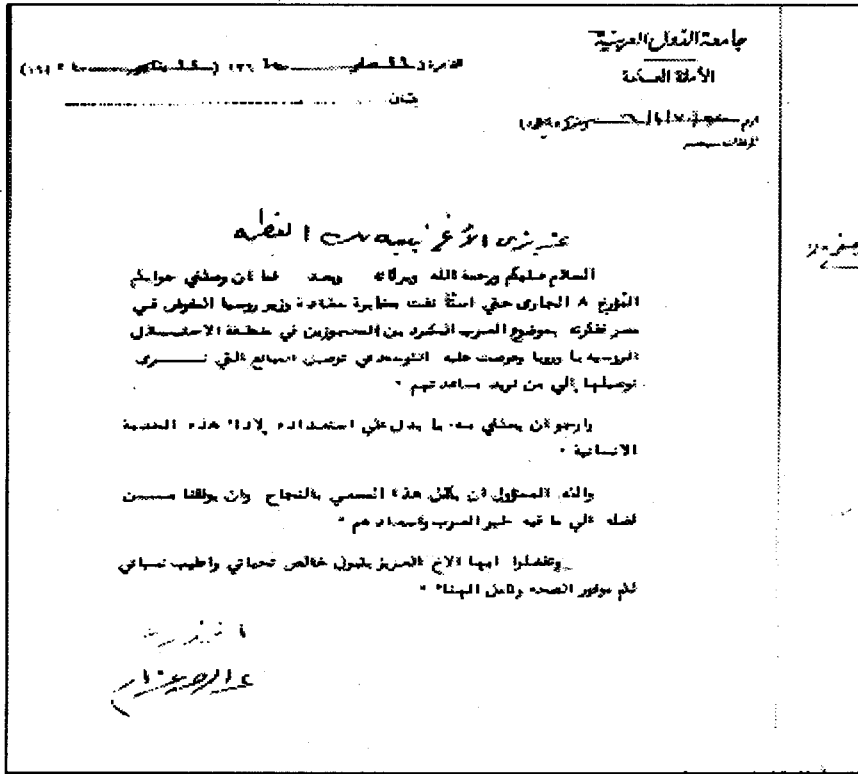 جامعة الدول العربية
الأمانة العامة
القاهرة في
بشأن
رقم
المرفقات
عزيزي الأخ نبيه بك العظمه
السلام عليكم ورحمة الله وبركاته وبعد فما ان وصلني جوابكم
المؤرخ ٨ الجاري حتى مقابرة سعادة وزير روسيا المفوض في
مصر بموضوع العرب من المحجوزين في منطقة الاحتلال
الروسيه با وروبا وعرضت عليه في توصيل المبالغ التي نــرى
توصيلها إلي من نريد مساعدتهم ٠
وارجو ان يصلني منه ما يدل علي استعداده لاداء هذه الخدمة
الانسانية ٠
والله المسؤول ان يكلل هذا المسعي بالنجاح وان يوفقنا مــن
فضله الي ما فيه خير العرب واسعادهم ٠
وتفضلوا ايها الاخ العزيز بقبول خالص تحياتي واطيب تمنياتي
لكم موفور الصحه وكامل الهناء ٠
عبد الرحمن عزام